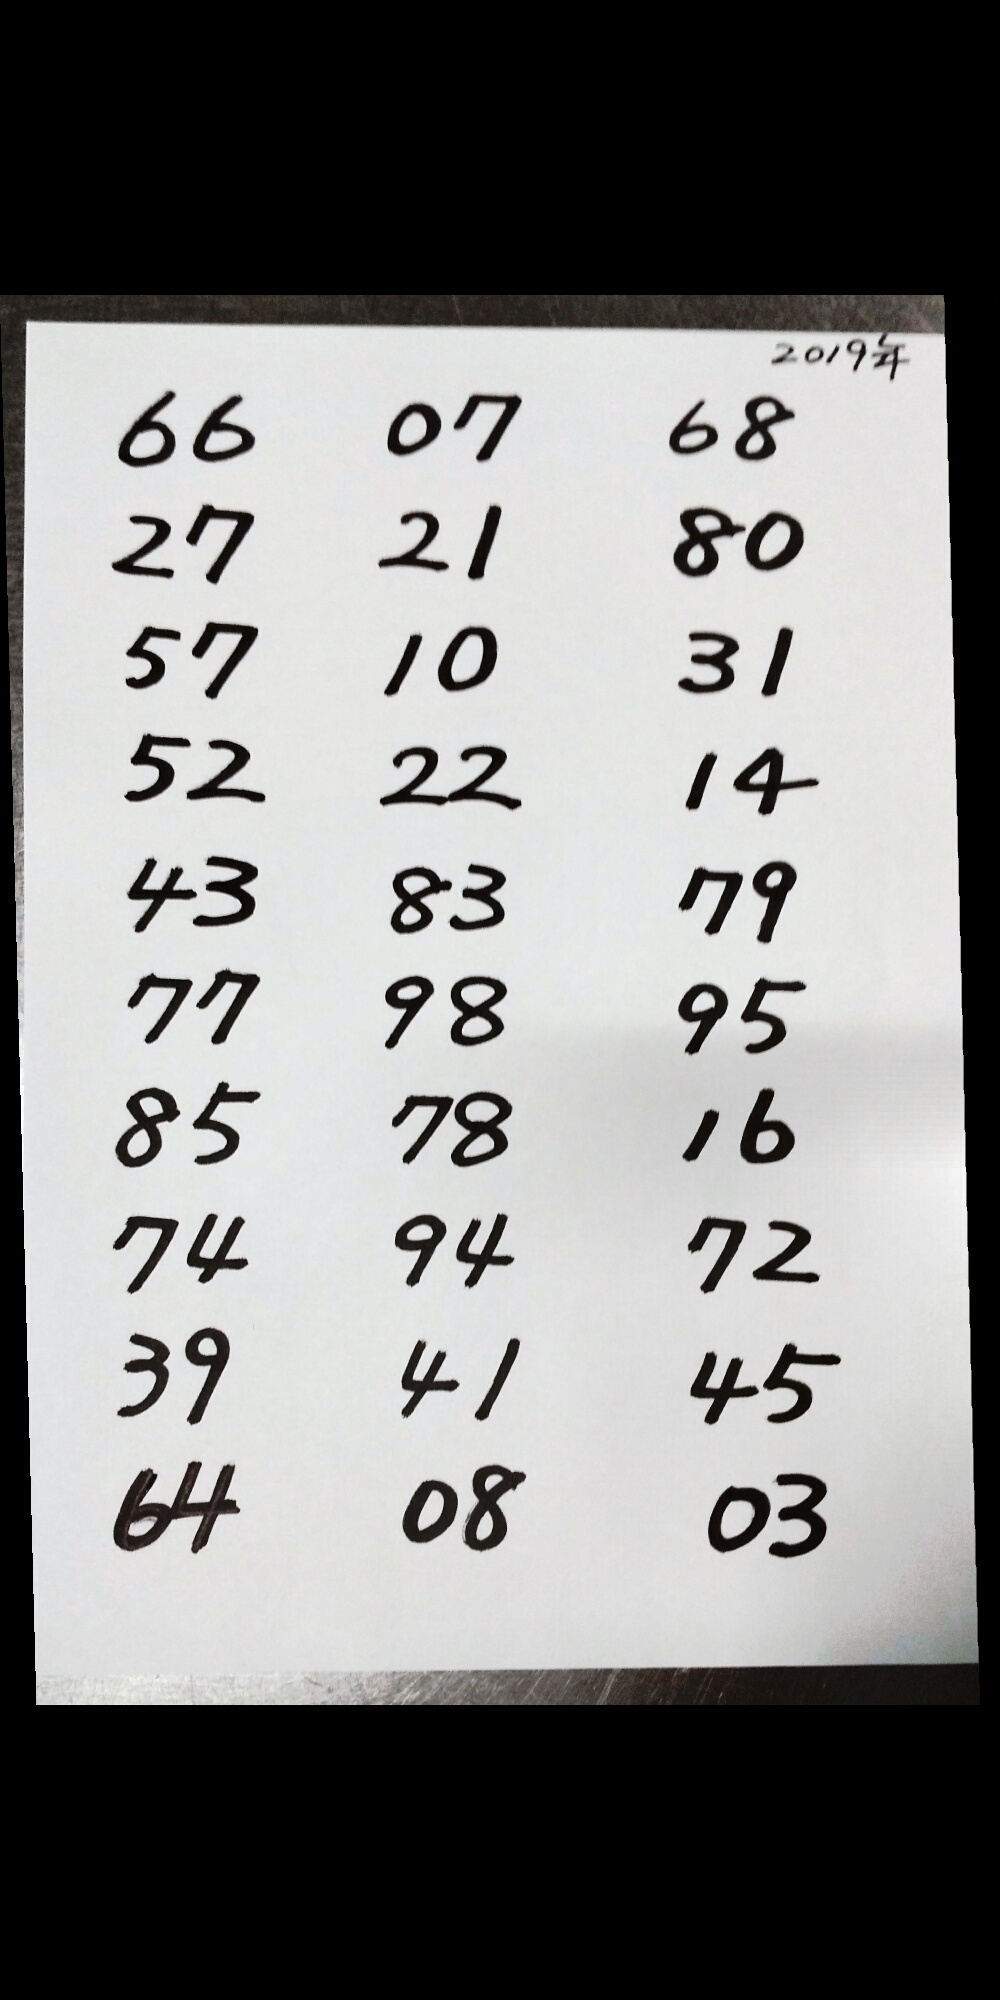 2019年
66 07 68
27 21 80
57 10 31
52 22 14
43 83 79
77 98 95
85 78 16
74 94 72
39 41 45
64 08 03